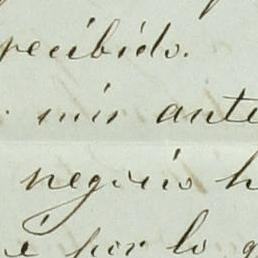 recibido.
mis ante
negocio h
é por lo q